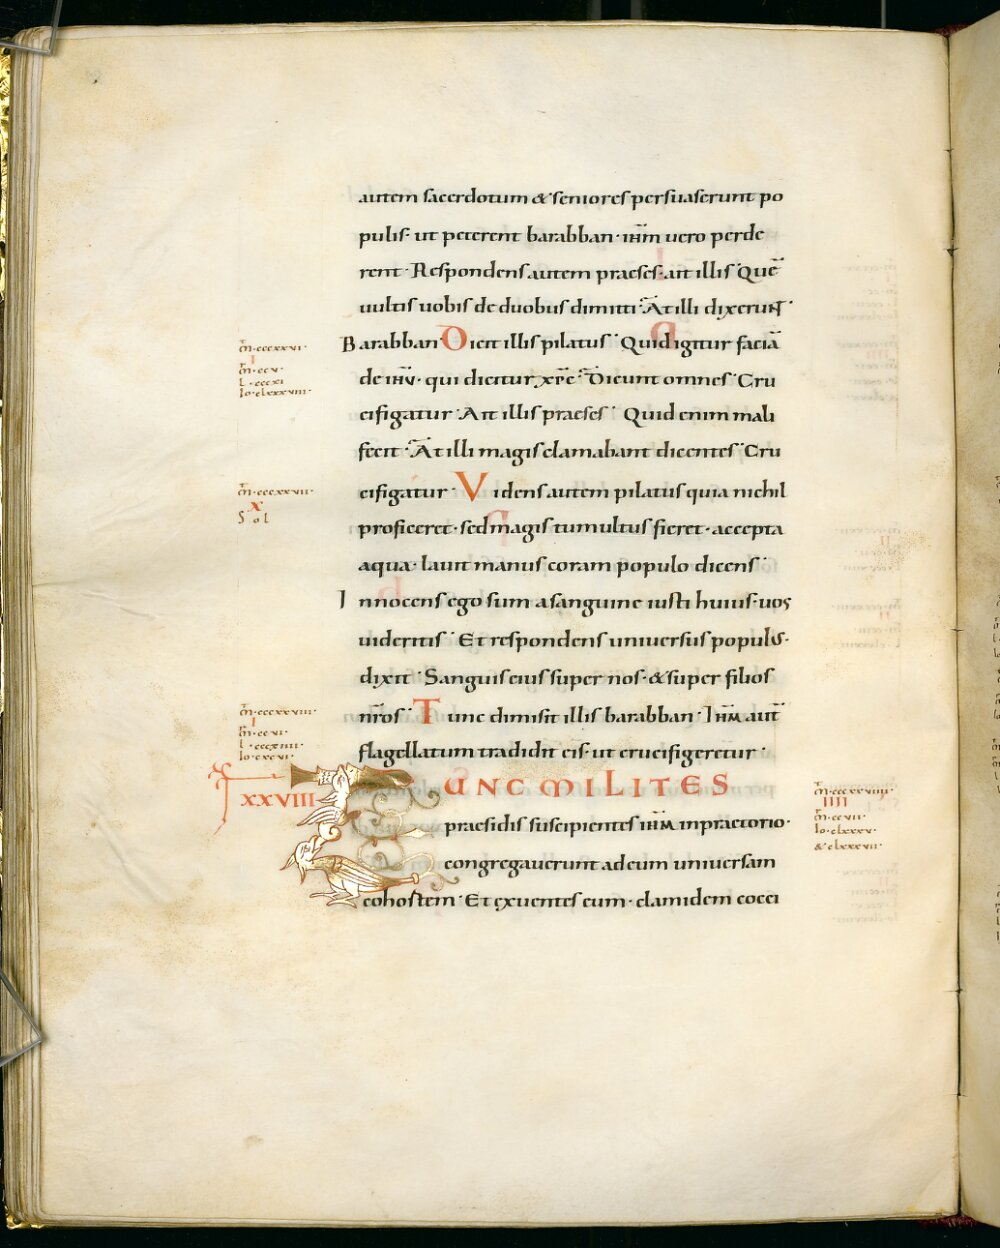 autem sacerdotum & seniores persuaserunt po
pulis· ut peterent barabban· ihm̄ uero perde
rent· Respondens autem praeses· ait illis· Quē
uultis uobis de duobus dimitti· At illi dixerunt·
Barabban· Dicit illis pilatus· Quid igitur faciā
de ihū· qui dicitur xp̄c· Dicunt omnes· Cru
cifigatur· Ait illis praeses· Quid enim mali
fecit· At illi magis clamabant dicentes· Cru
cifigatur· Videns autem pilatus quia nichil
proficeret· sed magis tumultus fieret· accepta
aqua· lauit manus coram populo dicens·
Innocens ego sum a sanguine iusti huius· uos
uideritis· Et respondens uniuersus populus·
dixit· Sanguis eius super nos· & super filios
nr̄os· Tunc dimisit illis barabban· Ihm̄ aut̄
flagellatum tradidit eis· ut crucifigeretur·
XXVIII TUNC MILITES
praesidis suscipientes ihm̄ in praetorio·
congregauerunt ad eum uniuersam
cohortem· Et exuentes eum· clamidem cocci
m̄· cccxxvi·
I
m̄· ccv·
l· cccxi
io· clxxxviii·
m̄· cccxxvii·
X
Sol
m̄· cccxxviii·
I
m̄· ccvi·
l· cccxiiii·
io· cxcvi·
m̄· cccxxviiii·
IIII
m̄· ccvii·
io· clxxxv·
& clxxxvii·